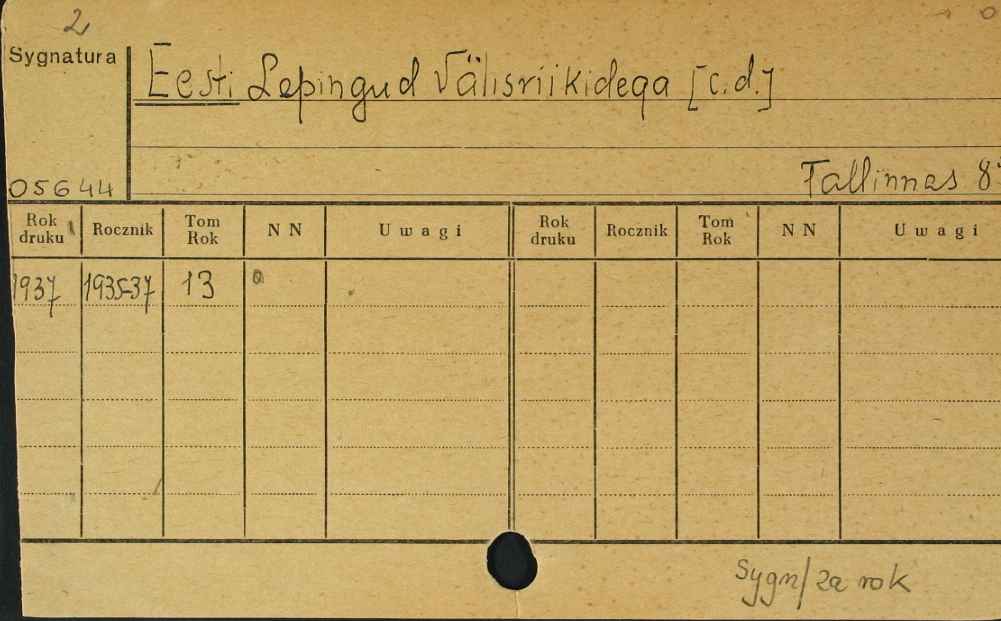 2
Sygnatura
Eesti Lepingud Välisriikidega [c.d.]
05644 Tallinnas 8°
Rok druku Rocznik Tom Rok N N Uwagi Rok druku Rocznik Tom Rok N N Uwagi
1937 1935-37 13
Sygn/za rok